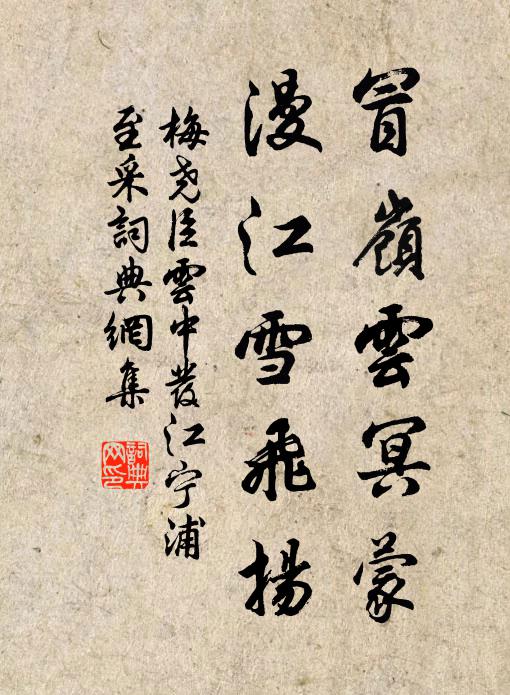 冒嶺雲冥蒙
漫江雪飛揚
梅尧臣雲中發江宁浦
至采詞典網集
詞典网印